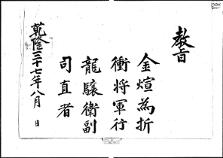 教旨
金煊為折
衝将軍行
龍驤衛副
司直者
乾隆二十七年八月 日